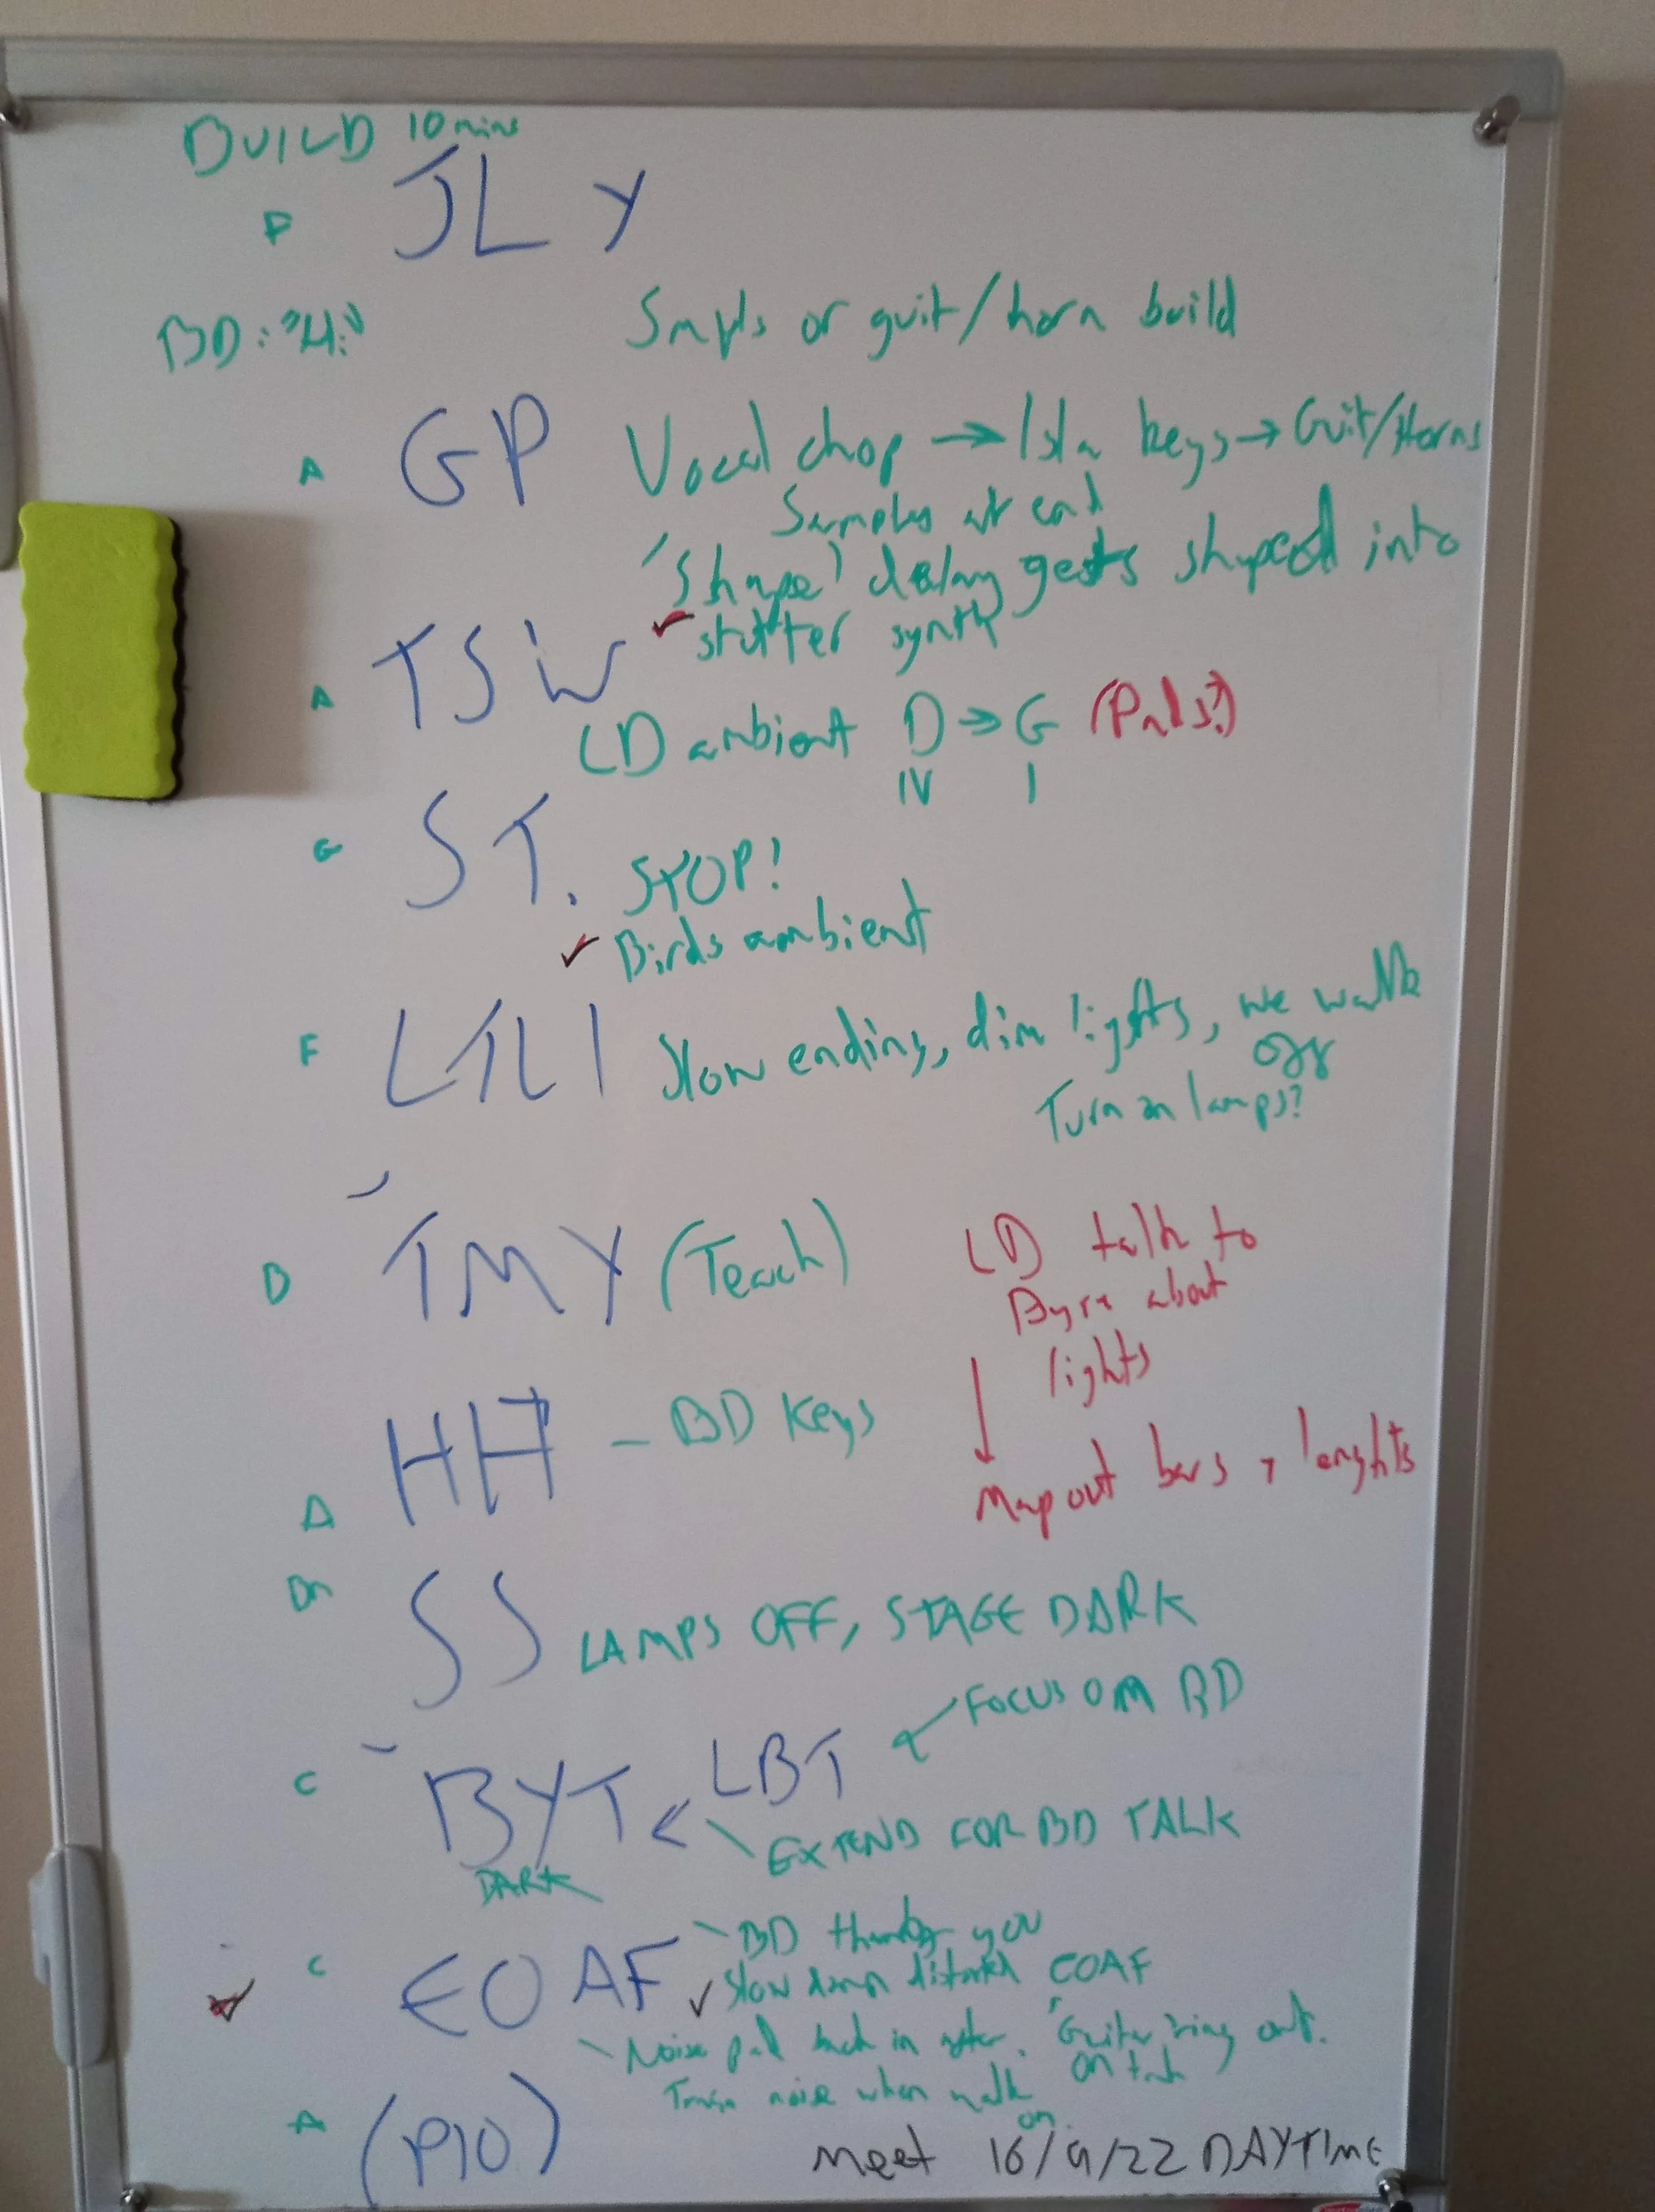 BUILD 10 mins
F JLY
BD: "Hi"
Smpls or guit/horn build
A GP Vocal chop → Isla keys → Guit/Horns
Samples at end
'Shape' delay gets shaped into
✓ stutter synth
A TSIW
LD ambient D → G (Pads?)
IV I
G ST. STOP!
✓ Birds ambient
F LTLI Slow ending, dim lights, we walk
off
Turn on lamps?
D TMY (Teach)
LD talk to
Byre about
lights
↓
Map out bars + lenghts
A HH – BD Keys
Dm SS LAMPS OFF, STAGE DARK
C BYT < LBT
FOCUS ON BD
EXTEND FOR BD TALK
DARK
✓ C EOAF
BD thank you
✓ Slow down EOAF
Noise pad back in after. Guitar ring out.
noise when walk on
A (PIO)
Meet 16/9/22 DAYTIME